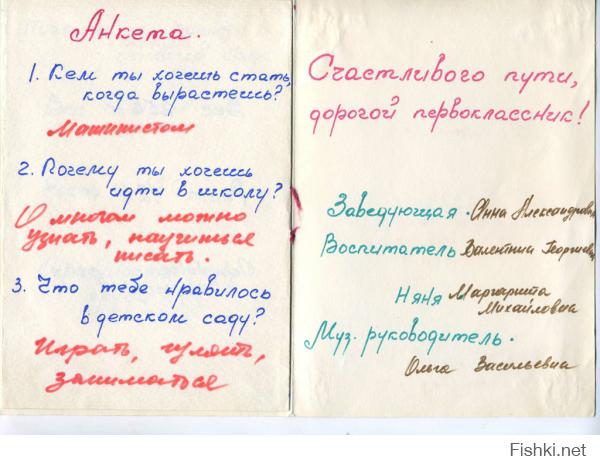 Анкета.
1. Кем ты хочешь стать,
когда вырастешь?
Машинистом
2. Почему ты хочешь
идти в школу?
О многом можно
узнать, научиться
писать.
3. Что тебе нравилось
в детском саду?
Играть, гулять,
заниматься
Счастливого пути,
дорогой первоклассник!
Заведующая. Анна Александров
Воспитатель Валентина Георгиев
Няня Маргарита
Михайловна
Муз. руководитель.
Ольга Васильевна
Fishki.net